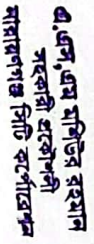 এ.এস.এম মহিউর রহমান
সহকারী প্রকৌশলী
নারায়ণগঞ্জ সিটি কর্পোরেশন